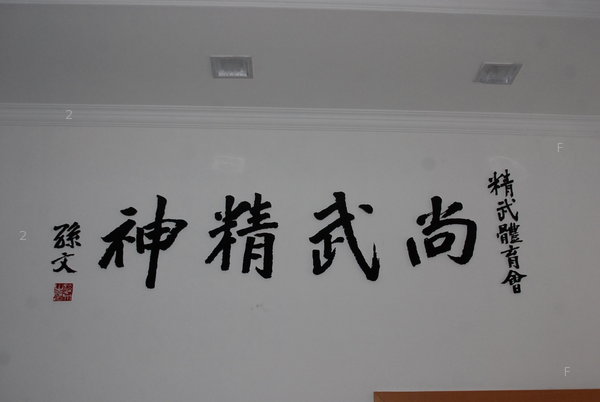 精武體育會
尚武精神
孫文
2
F
2
F